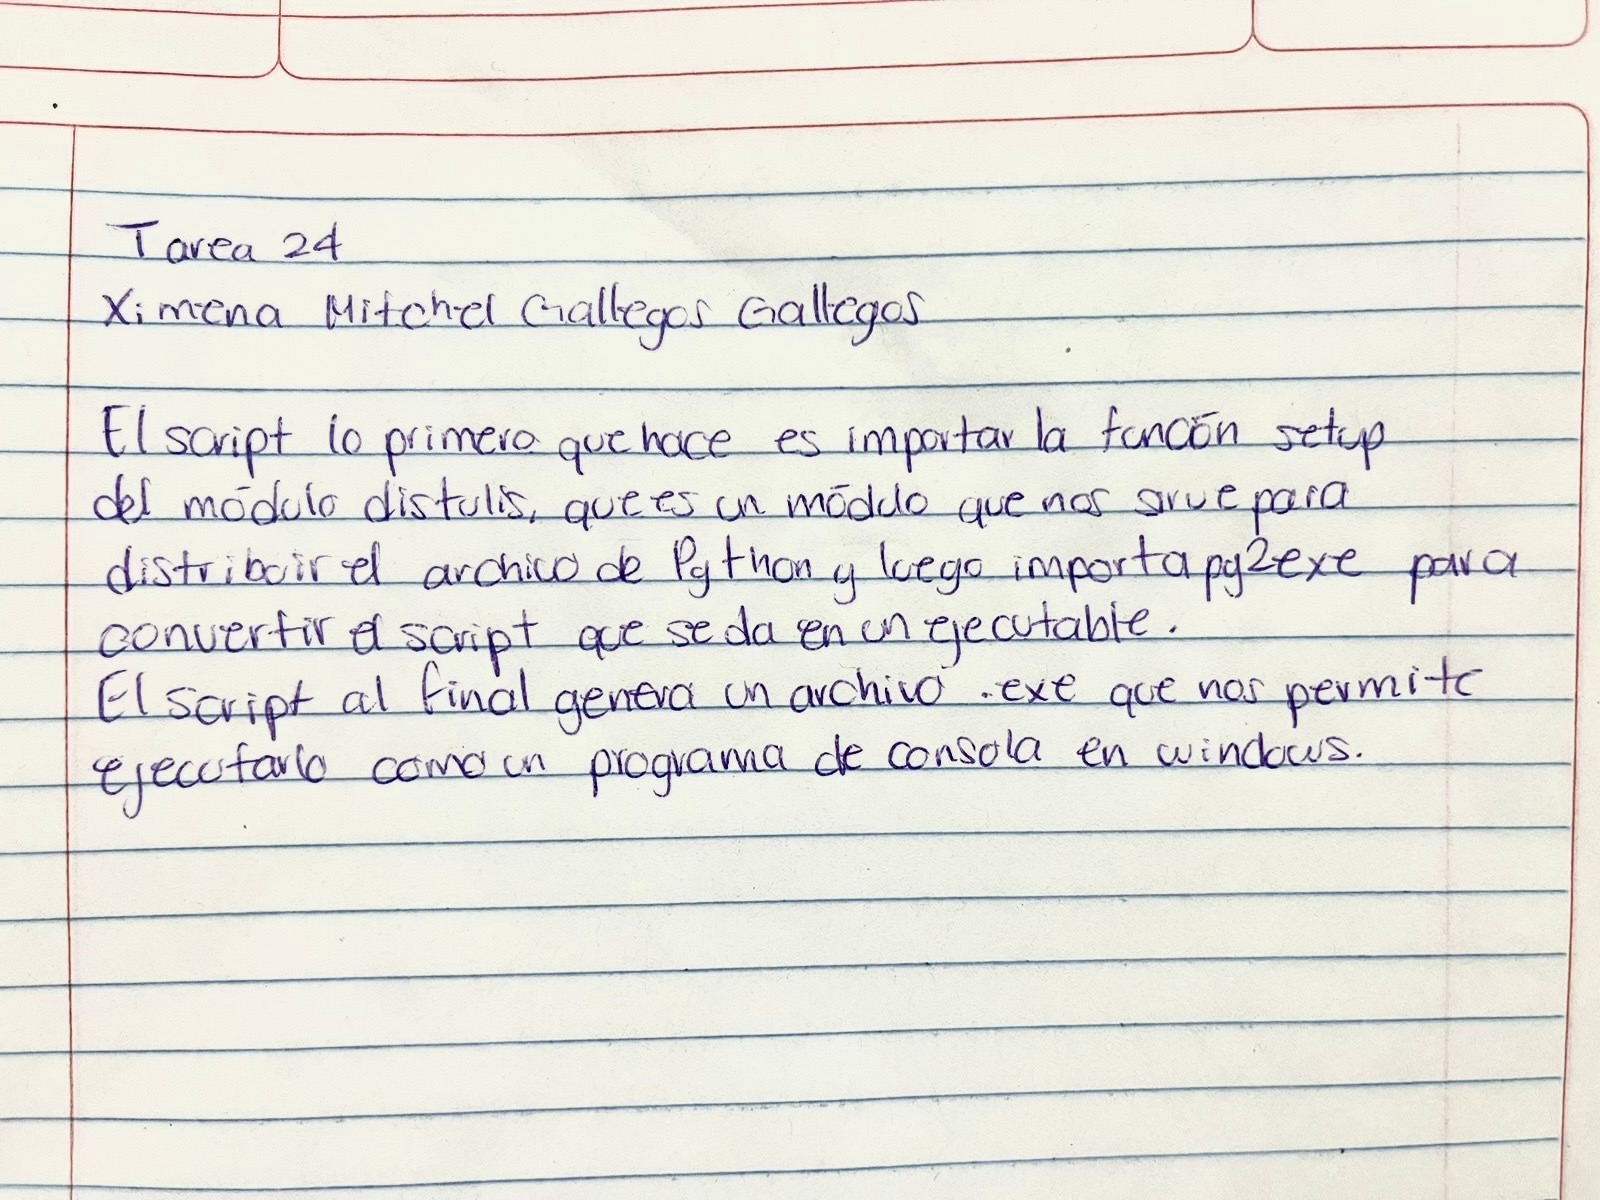 Tarea 24
Ximena Mitchel Gallegos Gallegos
El script lo primero que hace es importar la función setup
del módulo distulis, que es un módulo que nos sirve para
distribuir el archivo de Python y luego importa py2exe para
convertir el script que se da en un ejecutable.
El script al final genera un archivo .exe que nos permite
ejecutarlo como un programa de consola en windows.